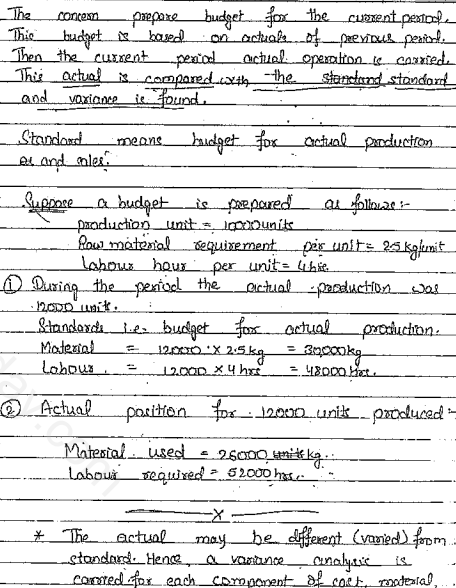 The concern prepare budget for the current period.
This budget is based on actuals of previous period.
Then the current period actual operation is carried.
This actual is compared with the standard standard
and variance is found.
Standard means budget for actual production
or and sales.
Suppose a budget is prepared as follows:-
production unit = 10000 units
Raw material requirement per unit = 2.5 kg/unit
Labour hour per unit = 4 hrs.
① During the period the actual production was
12000 units.
Standards i.e. budget for actual production.
Material = 12000 × 2.5 kg = 30,000 kg
Labour. = 12000 × 4 hrs = 48000 Hrs.
② Actual position for 12000 units produced:-
Material used = 26000 units kg.
Labour required = 52000 hrs.
x
* The actual may be different (varied) from
standard. Hence, a variance analysis is
carried for each component of cost, material,